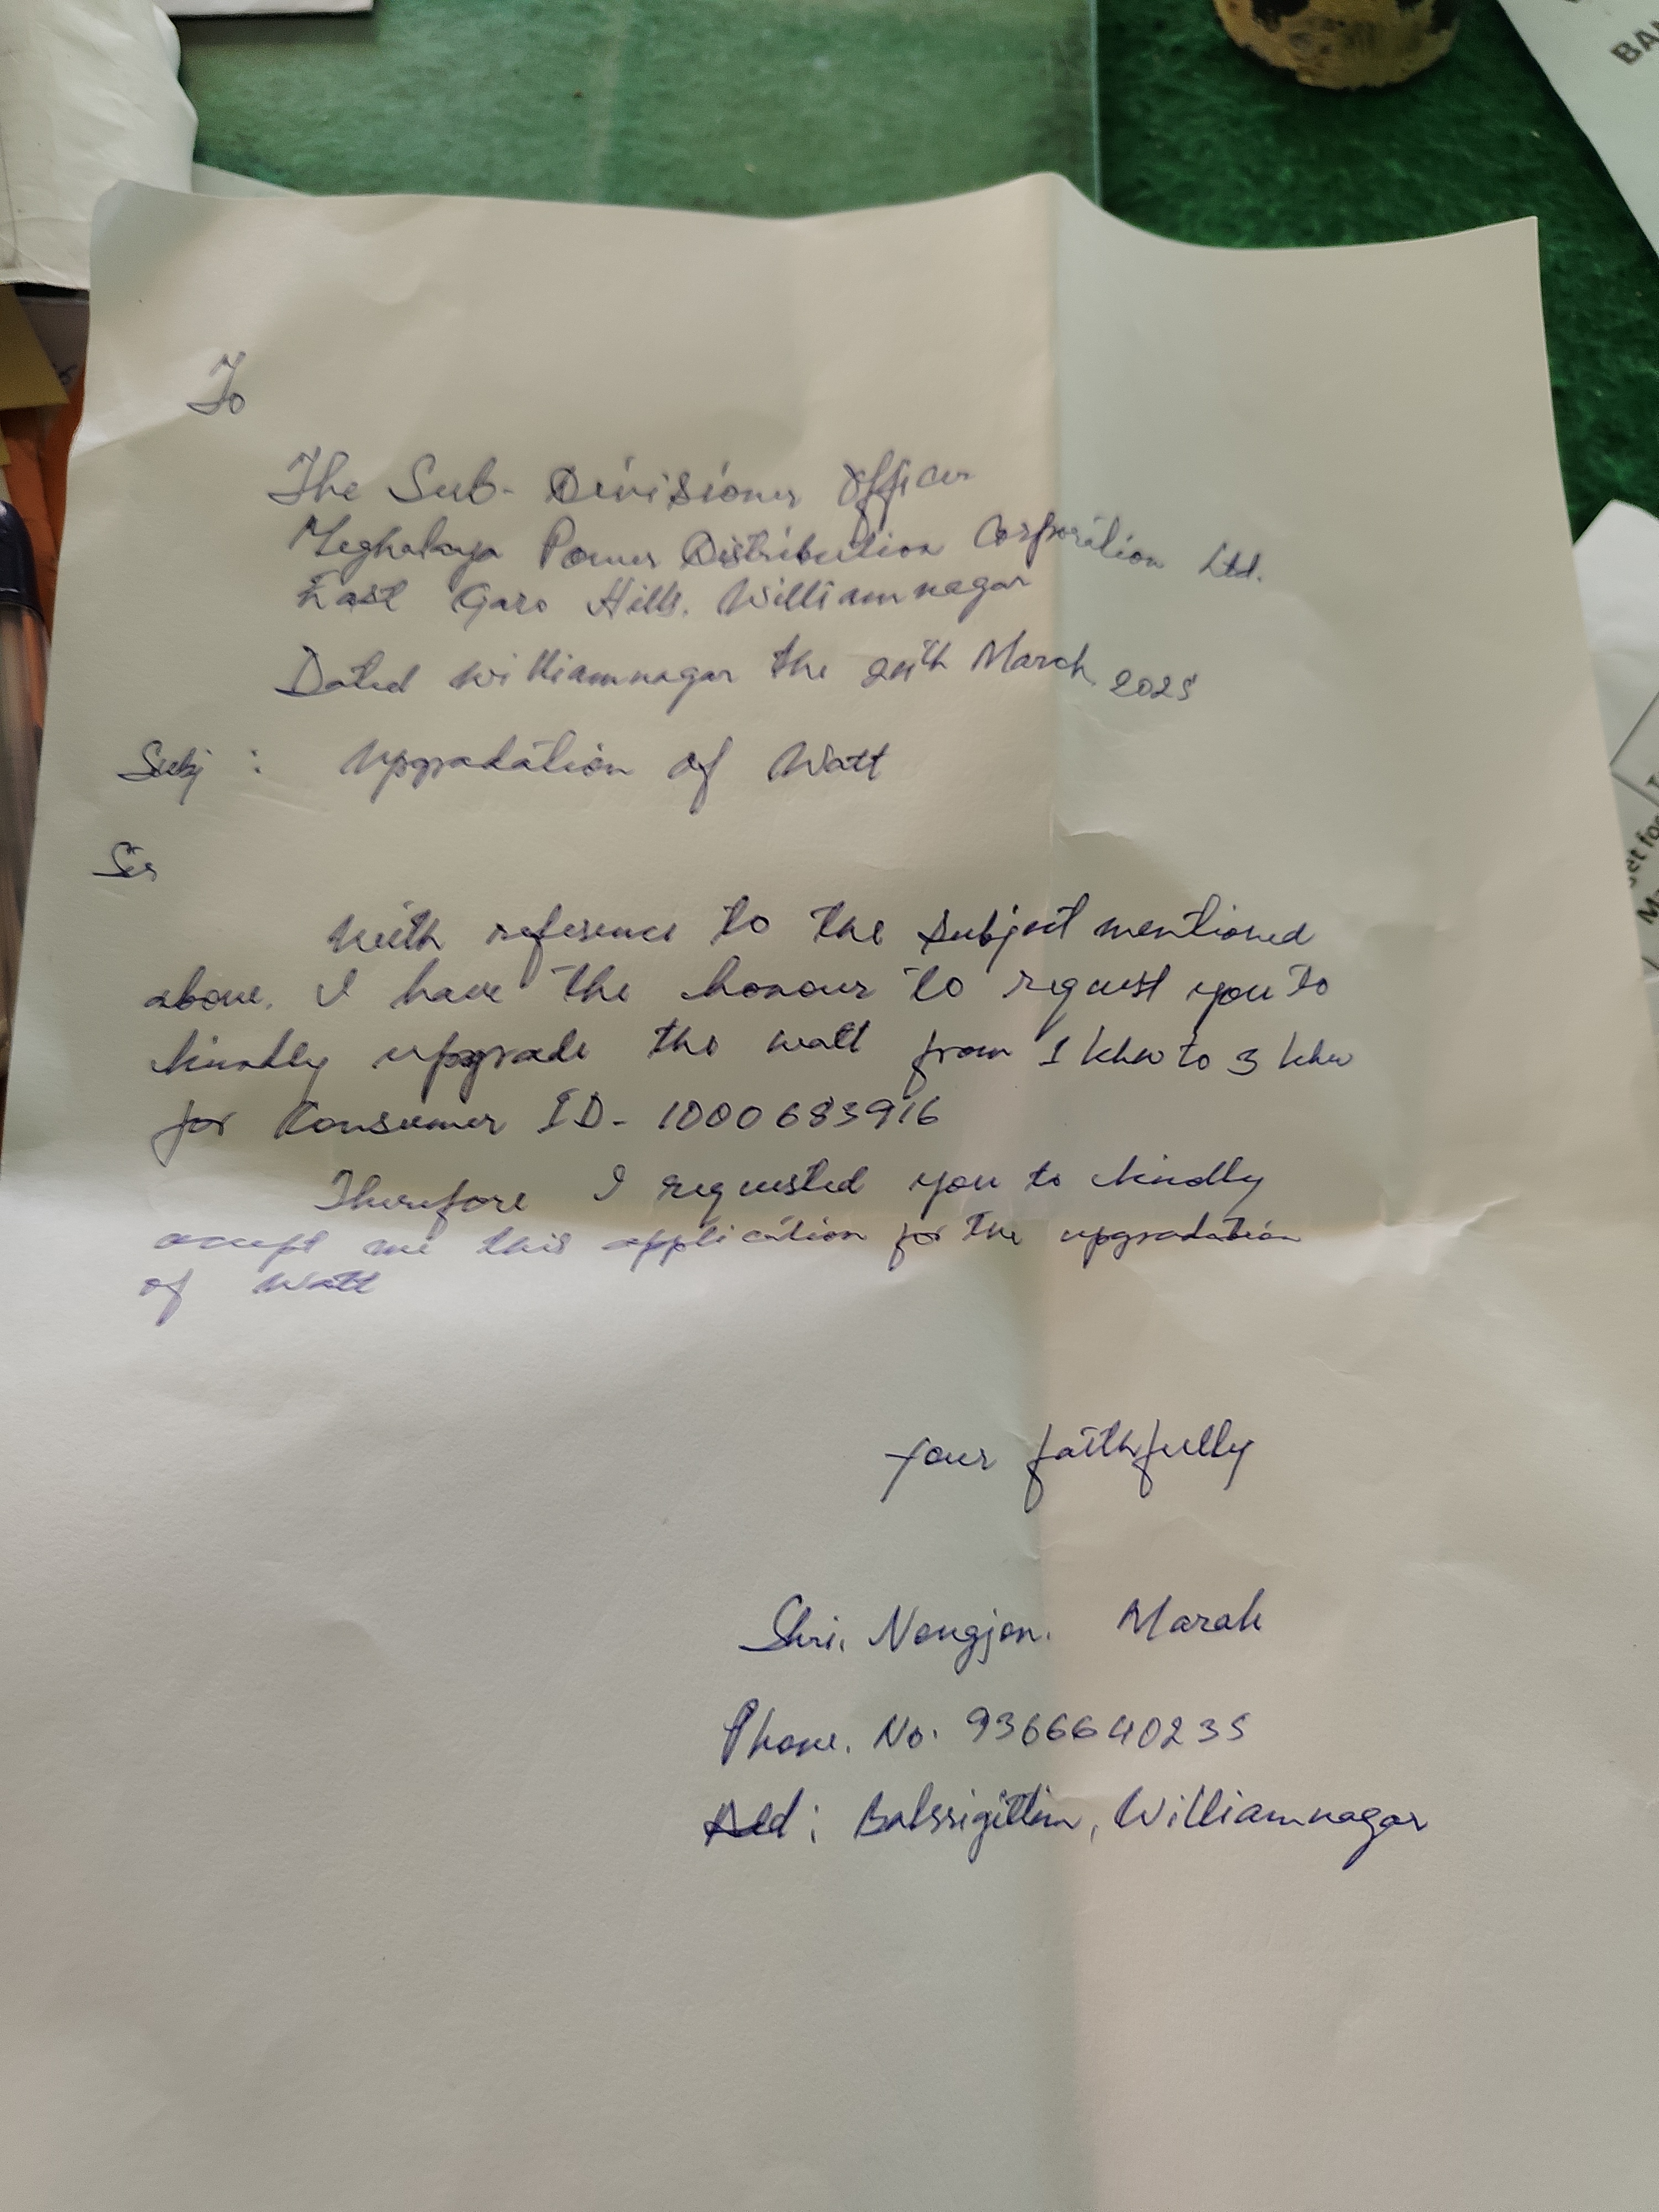 To
The Sub-Divisioner Officer
Meghalaya Power Distribution Corporation Ltd.
East Garo Hills. Williamnagar
Dated Williamnagar the 24th March 2025
Subj : Upgradation of Watt
Sir
With reference to the subject mentioned
above. I have the honour to request you to
kindly upgrade the watt from 1 khw to 3 khw
for Consumer ID- 1000683916
Therefore I requested you to kindly
accept me this application for the upgradation
of Watt
Your faithfully
Shri. Nongjon. Marak
Phone. No. 9366640235
Add: Williamnagar
BA